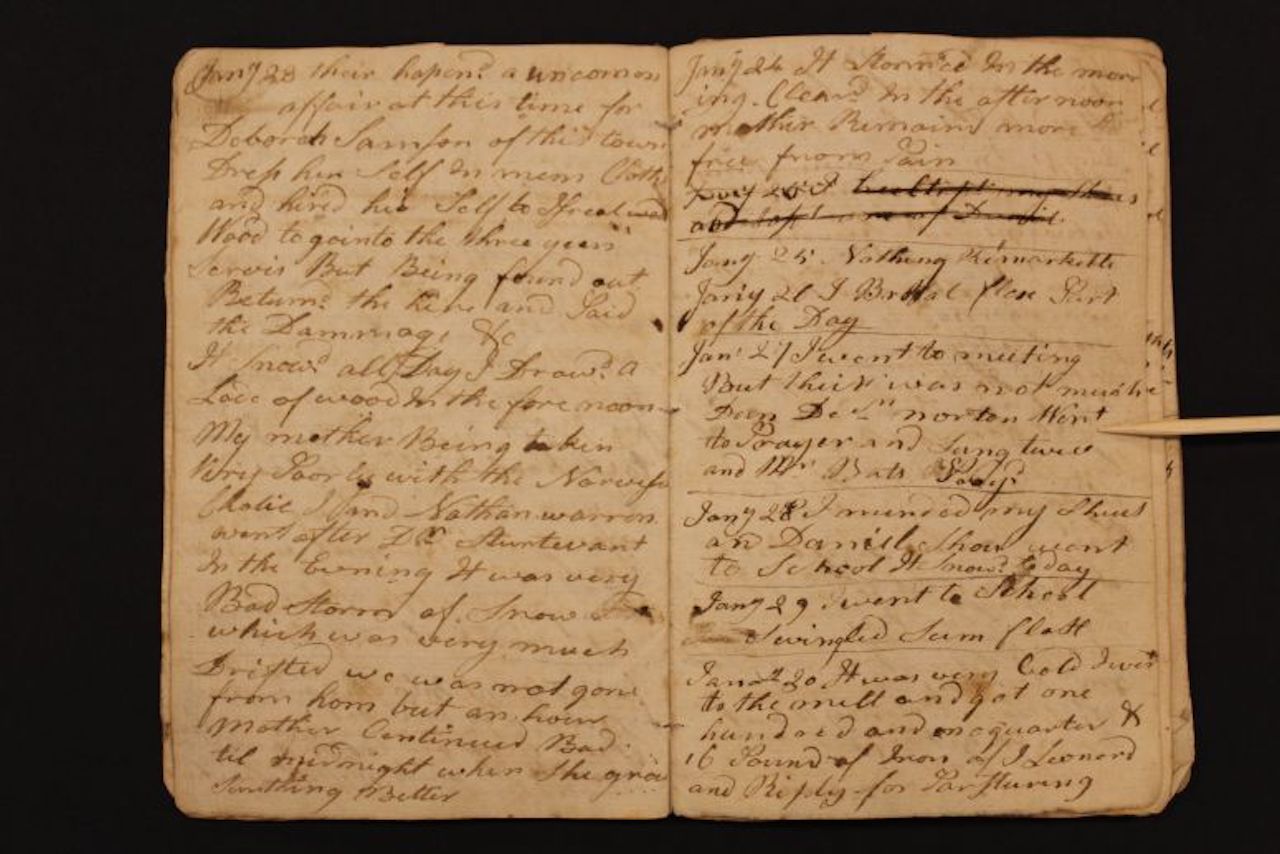 Jany 23 their hapend a uncomon
affair at this time for
Deborah Samson of this town
Dress her Self in mens Cloths
and hired her Self to Israel wood
Wood to go into the three years
Servis But Being found out
Returnd the hire and Paid
the Dammage &c
It Snowd all Day I Drawd a
Lode of wood In the fore noon
My mother Being taken
Very Poorly with the
Cholic I and Nathan warren
went after Dr Sturtevant
In the Evening It was very
Bad Storm of Snow
which was very much
Drifted we was not gone
from hom but an hour
Mother Continued Bad
til midnight when She grew
Somthing Better
Jany 24 It Stormed In the morn
ing. Cleard In the afternoon
mother Remains more
free from Pain
Jany 25 I
and of
Jany 25 Nathing Remarkable
Jany 26 I flax Part
of the Day
Jany 27 I went to meeting
But their was not
Deen norton Went
to Prayer and Sung twice
and Mr Bats
Jany 28 I mended my Shues
and Daniel Shaw went
to School It Snowd to day
Jany 29 I went to School
Swingled Sum flax
Jany 30 It was very Cold I went
to the mill and got one
hundred and onaquarter &
16 Pound of Iron of J Leonard
and Ripley for Parsturing